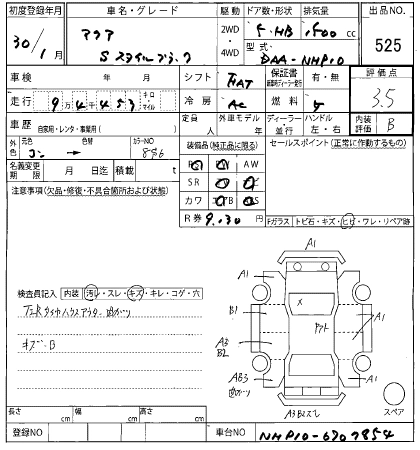 初度登録年月 車名・グレード 駆動 ドア数・形状 排気量 出品NO.
30/1月 アクア 2WD 5・HB 1,500cc 525
Sスタイルブラック 4WD 型式 DAA-NHP10
車検 年 月 シフト FAT 保証書 有・無 評価点
走行 9万4千453 キロ マイル 冷房 AC 燃料 3.5
車歴 自家用・レンタ・事業用( ) 定員 人 外車モデル 年 ディーラー 並行 ハンドル 左・右 内装評価 B
外色 元色 コン→ 色替 カラーNO 8S6 装備品(純正品に限る) セールスポイント(正常に作動するもの)
名義変更期限 月 日迄 積載 t AW
SR
注意事項(欠品・修復・不具合箇所および状態) カワ
R券 9,030円 Fガラス トビ石・キズ・ヒビ・ワレ・リペア跡
A1
A1 A1
検査員記入 内装 汚レ・スレ・キズ・キレ・コゲ・穴
B1 × アト A1
キズ-B
A3
B2
AB3 A1
A3B2スレ スペア
長さ cm 幅 cm 高さ cm
登録NO 車台NO NHP10-6707854